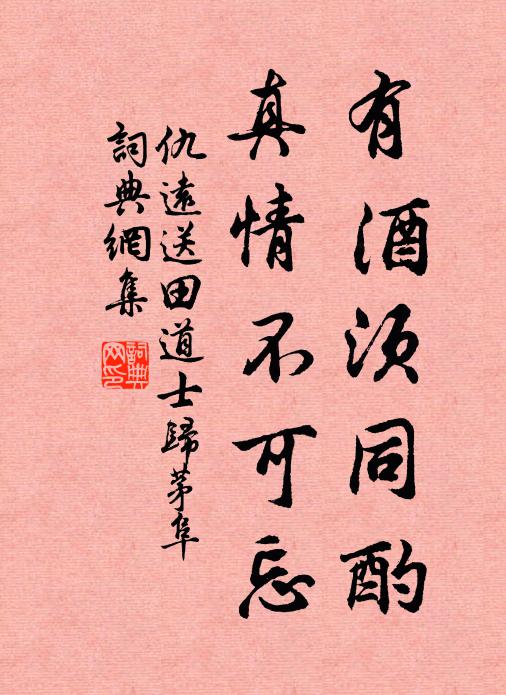 有酒须同酌
真情不可忘
仇遠送田道士歸茅阜
詞典網集
詞典网印